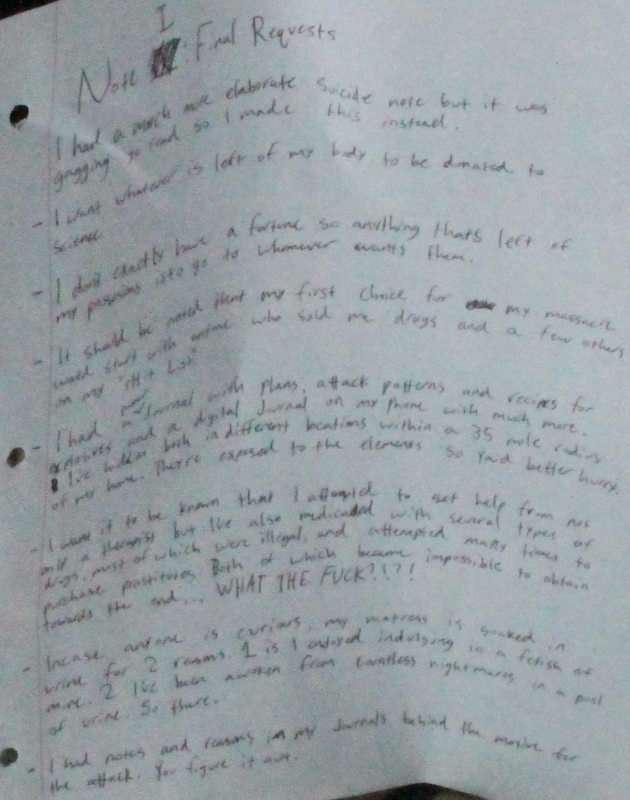 I
Note : Final Requests
I had a much more elaborate Suicide note but it was
gagging to read so I made this instead.
- I want whatever is left of my body to be donated to
science
- I dont exactly have a fortune so anything thats left of
my is to go to whomever wants them.
- It should be noted that my first choice for my massacre
would start with anyone who sold me drugs and a few others
on my "Shit List"
- I had a Journal with plans, attack patterns and recipes for
explosives and a digital Journal on my phone with much more.
I've hidden both in different locations within a 35 mile radius
of my home. They're exposed to the elements so You'd better hurry.
- I want it to be known that I attempted to get help from not
only a therapist but I've also medicated with several types of
drugs, most of which were illegal, and attempted many times to
purchase prostitutes. Both of which became impossible to obtain
towards the end... WHAT THE FUCK?!?!
- Incase anyone is curious, my matress is soaked in
urine for 2 reasons. 1 is I enjoyed indulging in a fetish of
mine. 2 I've been awoken from countless nightmares in a pool
of urine. So there.
- I had notes and reasons in my Journals behind the motive for
the attack. You figure it out.